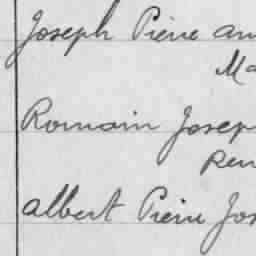 Joseph Pierre an
Ma
Romain Josep
Ren
Albert Pierre Jos